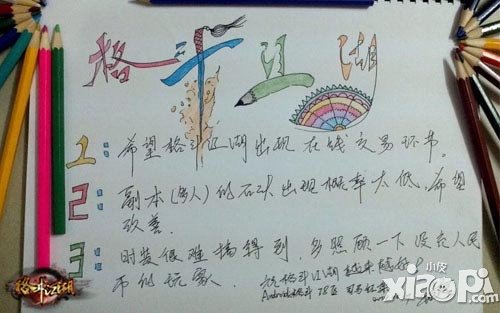 格斗江湖
1：希望格斗江湖出现在线交易环节。
2：副本(多人)的石头出现概率太低，希望
改善。
3：时装很难搞得到，多照顾一下没有人民
币的玩家。
祝格斗江湖越来越好！
Android格斗
格斗江湖
小皮
xiaopi.com